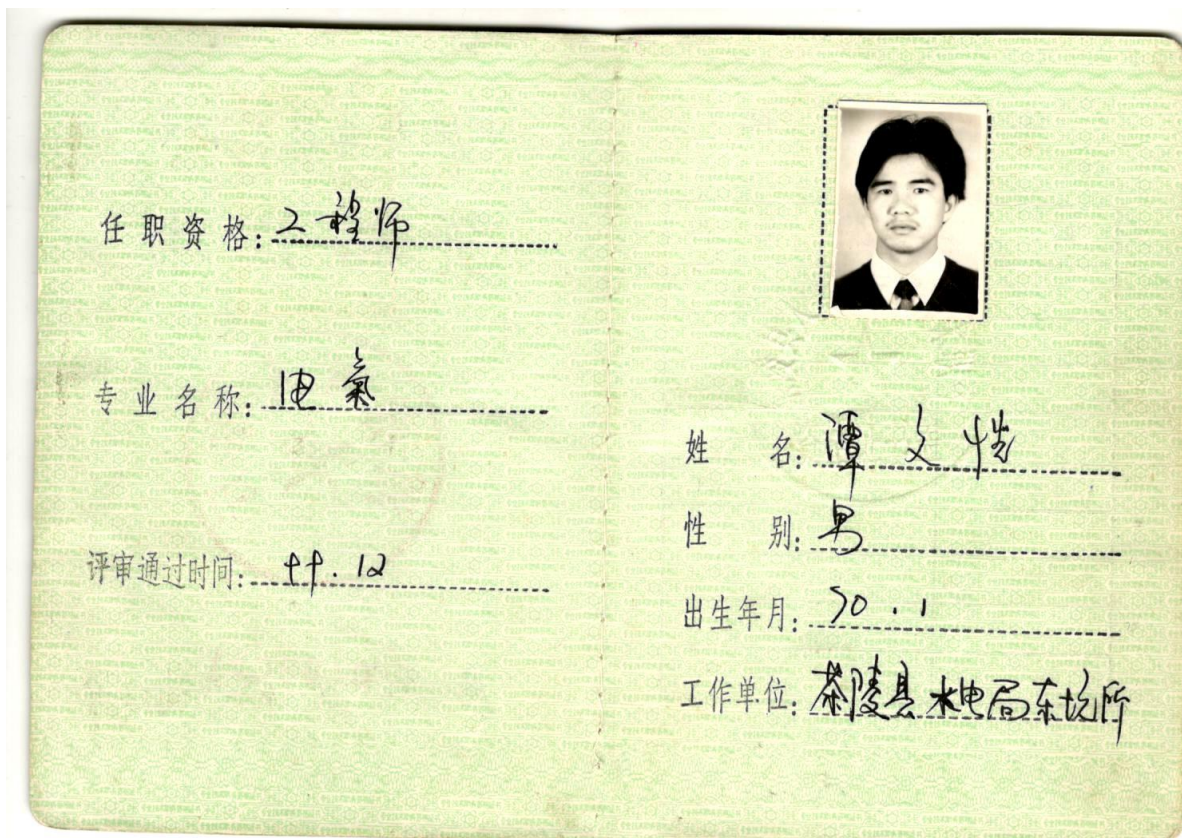 任职资格:工程师
专业名称:电氣
评审通过时间:99.12
姓名:潭文恺
性别:男
出生年月:70.1
工作单位:茶陵县水电局东坑所